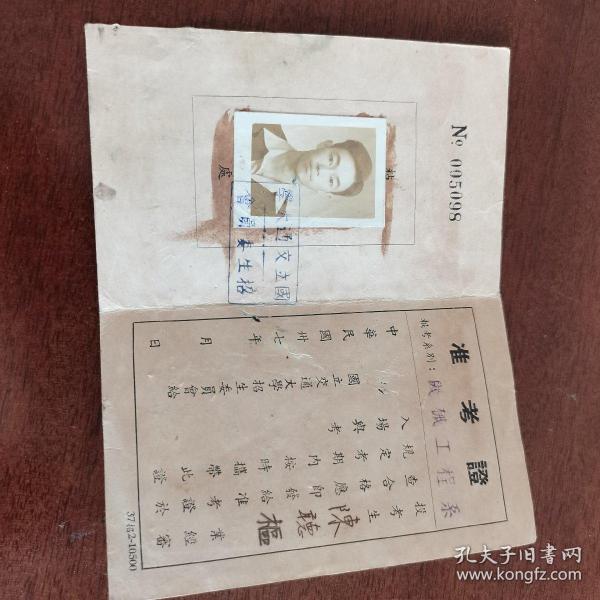 № 005098
粘
處
國立交通大學
招生委員會
准考證
報考系別：機械工程系
投考生陳聽樞業經審
查合格應即發給准考證於
規定期內按時攜帶此證
入場與考
國立交通大學招生委員會給
中華民國卅七年 月 日
37招2-10500
孔夫子旧书网
www.kongfz.com